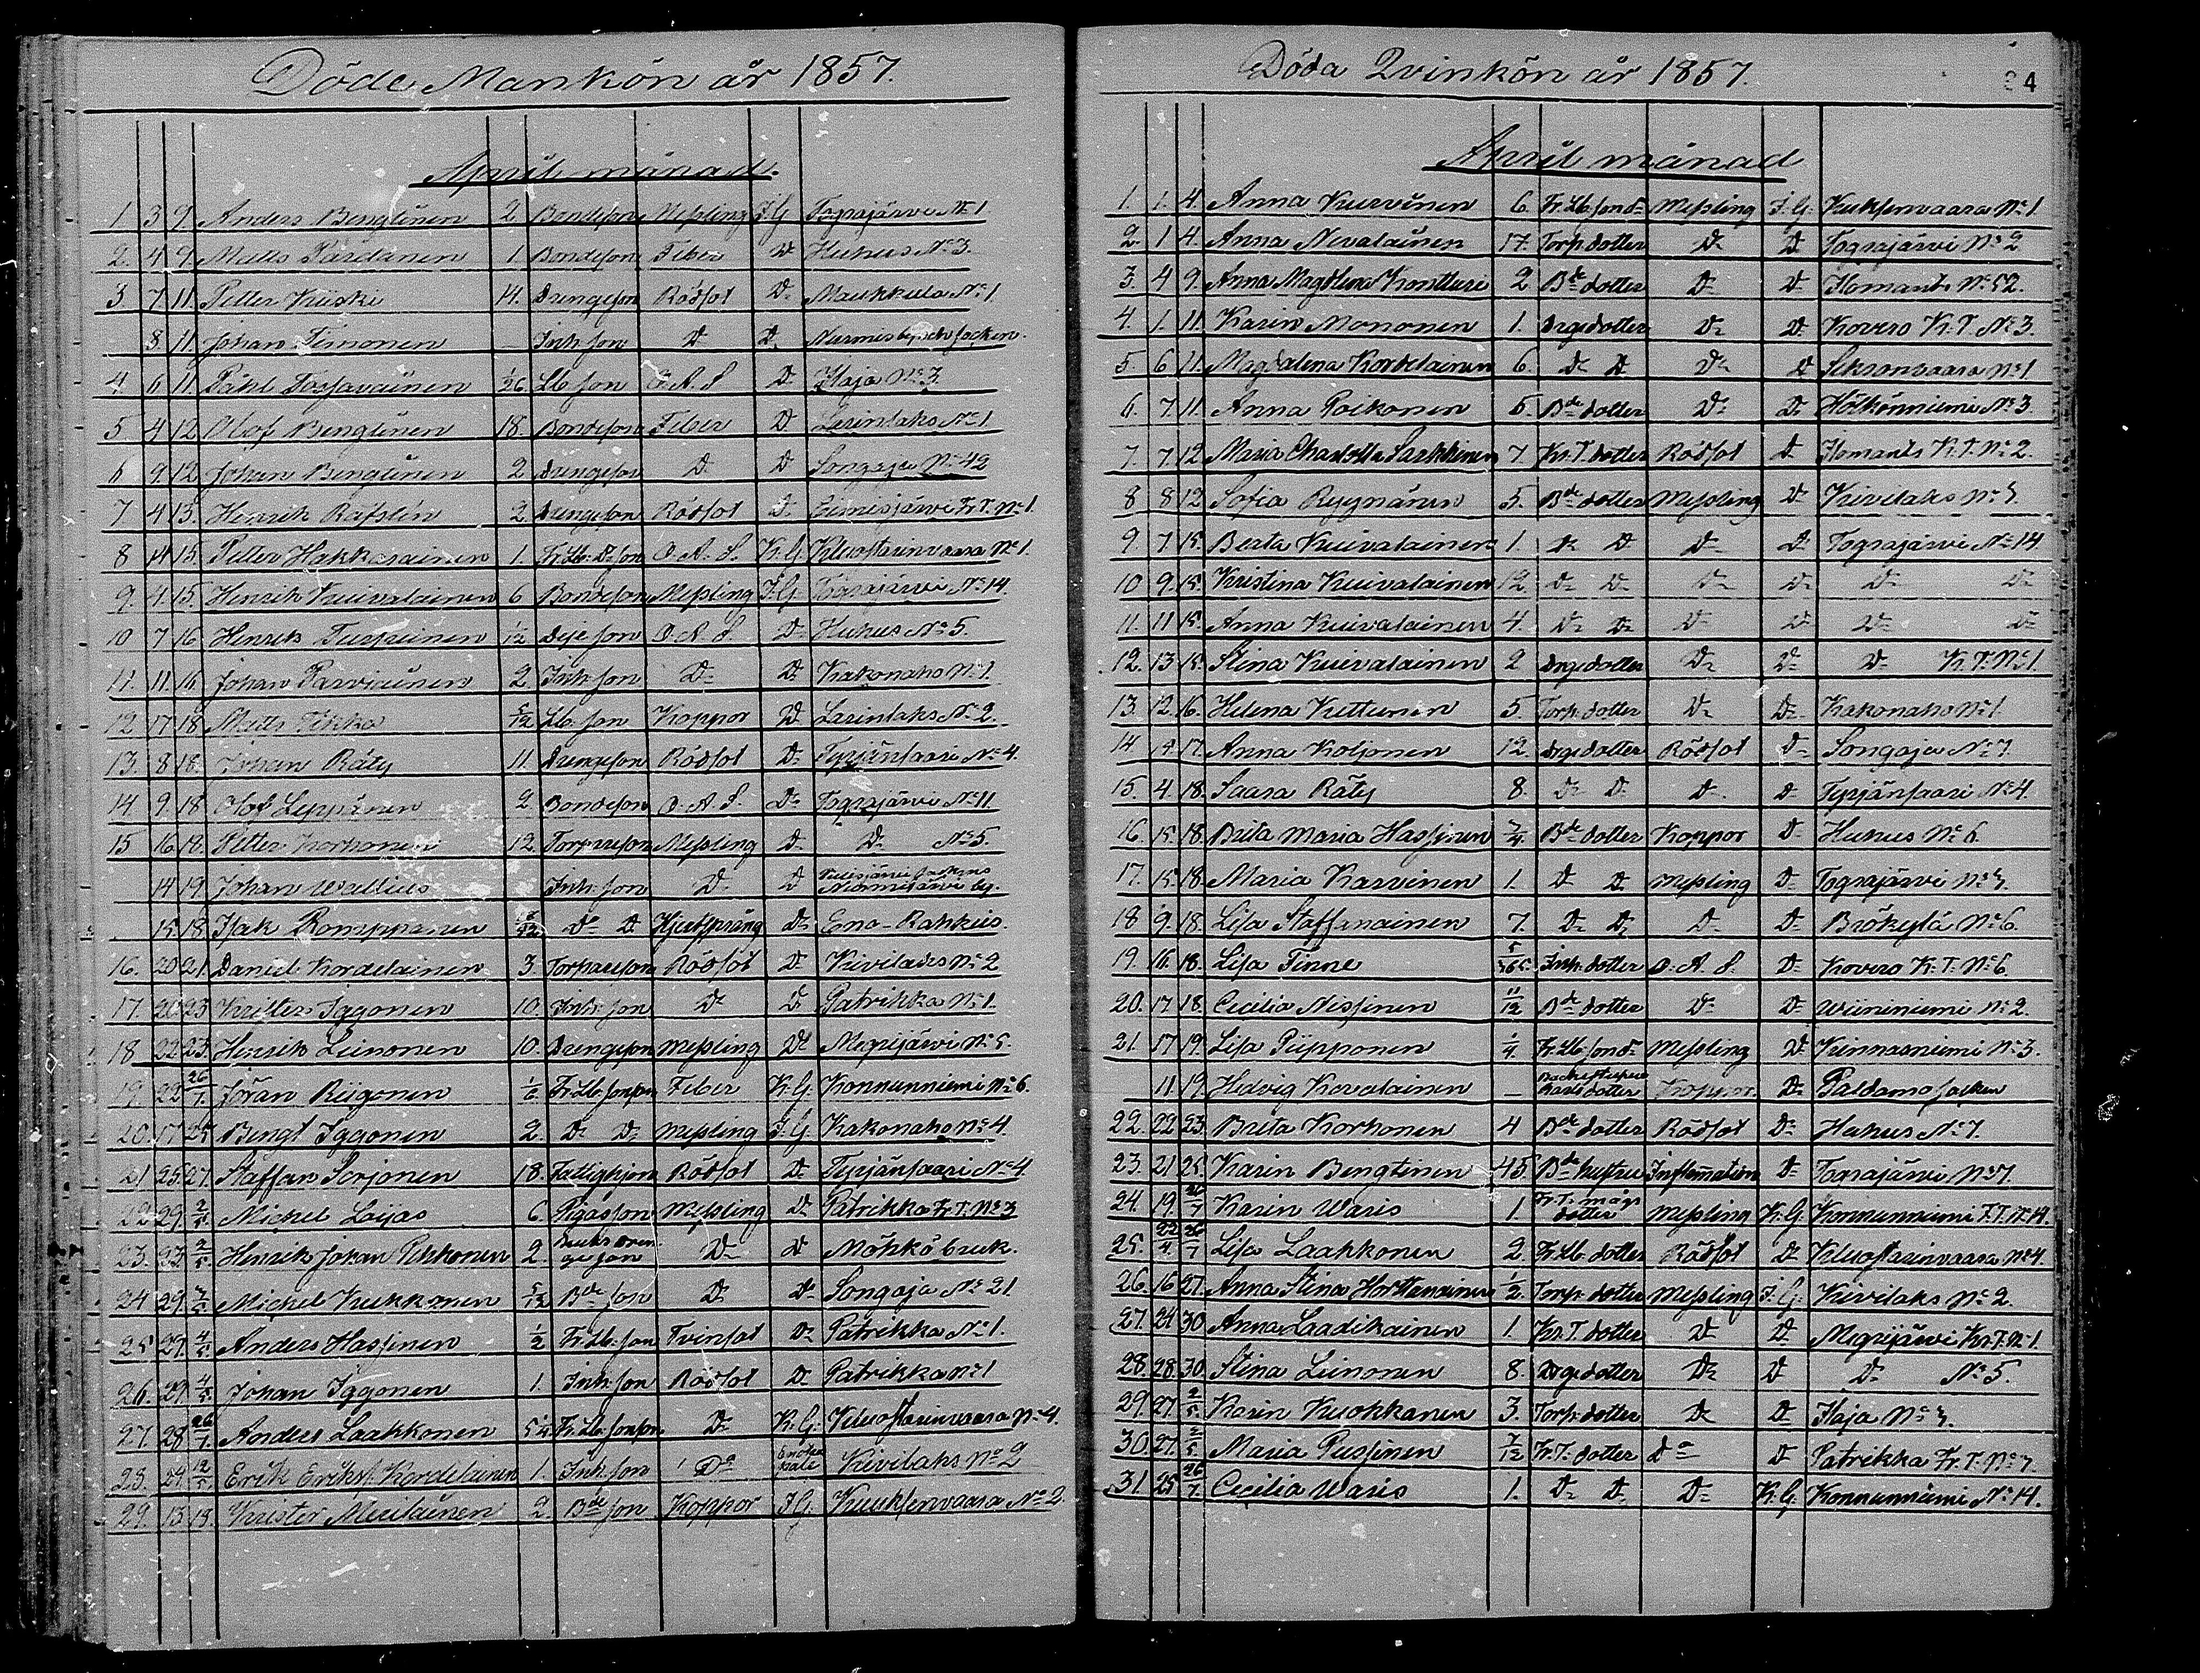 Döde Mankön år 1857.
April månad.
1. 3 9. Anders Bengtinen 2. Bondeson Messling I.G. Tograjärvi No 1
2. 4 9. Matts Pärdänen 1. Bondeson Feber Do Huhus No 3.
3 7 11. Petter Kiiski 14. Drengeson Rödsot Do Maukkula No 1
8 11. Johan Timonen Inh. son Do Do Nurmis socken.
4 6 11. Påhl Torsavainen 1/26 Lb son O.A.S. Do Ilaja No 3.
5 4 12. Olof Bengtinen 18. Bondeson Feber Do Lerinlaks No 1
6 9. 12. Johan Bengtinen 2 Drengeson Do Do Songaja No 42
7 4 13. Henrik Rafslin 2. Drengeson Rödsot Do Kr.T. No 1.
8 14 15. Petter Hakkarainen 1. O.A.S. Kr.G. No 1.
9. 4. 15. Henrik Kuivalainen 6 Bondeson Messling I.G. Tograjärvi No 14.
10 7 16 Henrik Turpeinen 1/12 son O.A.S. Do Huhus No 5.
11. 11. 16. Johan Parviainen 2 Inh. son Do Do Kakonaho No 1.
12 17 18. Matts Tikka 5/12 Lb. son Koppor Do Larinlaks No 2.
13. 8 18. Johan Räty 11. Drengeson Rödsot Do Tyrjänsaari No 4.
14 9. 18 Olof Leppänen 2 Bondeson O.A.S. Do Tograjärvi No 11
15 16 18. Petter Korhonen 12. Torpareson Messling Do Do No 5.
14 19. Johan Wallius Inh. son Do Do
15 18 Isak Romppanen Do Do Do Eno-Rahkis.
16. 20 21. Daniel Kordelainen 3. Torpareson Rödsot Do Kivilaks No 2
17. 20 23 Krister Iggonen 10. Inh. son Do Do Patrikka No 1.
18 22 23. Henrik Leinonen 10. Drengeson Messling Do Megrijärvi No 5.
19. 22 26/7 Jöran Riigonen 1/6 Fr.Lb. sonson Feber Kr.G. Konnunniemi No 6.
20. 17 25 Bengt Iggonen 2. Do Do Messling I.G. Kakonaho No 4.
21 25 27. Staffan Sorjonen 18. Fattighjon Rödsot Do Tyrjänsaari No 4
22 29. 2/5 Michel Loijas 6. Pigasson Messling Do Patrikka Fr.T. No 3
23. 23. 2/5 Henrik Johan Pekkonen 2. Do Do Möhkö bruk.
24 29. 2/5 Michel Kukkonen 5/12 Bde son Do Do Songaja No 21
25 27. 4/5 Anders Hassinen 1/2 Fr.Lb. son Tvinsot Do Patrikka No 1.
26. 29. 4/5 Johan Iggonen 1. Inh. son Rödsot Do Patrikka No 1
27. 28 26/7 Anders Laakkonen 5 1/4 Fr.Lb. sonson Do Kr.G. No 4.
28. 24 12/5 Erik Eriks. Kordelainen 1. Inh. son Do Kivilaks No 2
29. 13 18. Krister Meriläinen 2. Bde son Koppor I.G. Kuuksenvaara No 2.
Döda Qvinkön år 1857.
84
April månad
1. 1. 4. Anna Kurvinen 6. Fr.Lb. sond. Messling I.G. Kuuksenvaara No 1.
2. 1 4. Anna Nevalainen 17. Torp. dotter Do Do Tograjärvi No 2
3. 4 9. Anna Magdlena Kontturi 2 Bde dotter Do Do Ilomants No 52.
4. 1. 11. Karin Mononen 1. Drgs dotter Do Do Kovero Kr.T. No 3.
5 6 11. Magdalena Kordelainen 6. Do Do Do Do Sikronvaara No 1.
6. 7. 11. Anna Poikonen 5. Bde dotter Do Do Hölkönniemi No 3.
7. 7. 12. Maria Charlotta Sarkkinen 7. Kr.T. dotter Rödsot Do Ilomants Kr.T. No 2.
8 8 12 Sofia Ryynänen 5. Bde dotter Messling Do Kivilaks No 5.
9. 7 15. Beata Kuivalainen 1. Do Do Do Do Tograjärvi No 14.
10 9. 15 Kristina Kuivalainen 12. Do Do Do Do Do Do
11. 11 15. Anna Kuivalainen 4. Do Do Do Do Do Do
12. 13 15. Stina Kuivalainen 2 Drgs dotter Do Do Do Kr.T. No 1.
13. 12. 16. Helena Kettunen 5. Torp. dotter Do Do Kakonaho No 1
14. 15. 17. Anna Koljonen 12. Drgs dotter Rödsot Do Songaja No 7.
15. 4. 18. Saara Räty 8. Do Do Do Do Tyrjänsaari No 4.
16. 15. 18. Brita Maria Hassinen Bde dotter Koppor Do Huhus No 6.
17. 15 18. Maria Karvinen 1. Do Do Messling Do Tograjärvi No 5.
18 9. 18. Lisa Staffanainen 7. Do Do Do Do Brökylä No 6.
19. 16. 18. Lisa Tinne 5/365 Inh. dotter O.A.S. Do Kovero Kr.T. No 6.
20. 17 18. Cecilia Nissinen 11/12 Bde dotter Do Do Wiininiemi No 2.
21. 17 19. Lisa Piipponen 1/4. Fr.Lb. sond. Messling Do Kinnasniemi No 3.
11. 19. Hedvig Kovalainen dotter Koppor. Do Paldamo socken
22. 22 23. Brita Korhonen 4 Bde dotter Rödsot Do Huhus No 7.
23. 21 25. Karin Bengtinen 45. Bde hustru Inflamation Do Tograjärvi No 7.
24. 19. 26/7 Karin Waris 1. Fr.T. mågs dotter Messling Kr.G. Konnunniemi F.T. No 14.
25. 22/4. 26/7 Lisa Laakkonen 2 Fr.Lb. dotter Rödsot Do No 4.
26. 16 27. Anna Stina Horttanainen 1/2 Torp. dotter Messling I.G. Kivilaks No 2.
27. 24 30. Anna Laadikainen 1. Kr.T. dotter Do Do Megrijärvi Kr.T. No 1.
28. 28. 30. Stina Leinonen 8. Drgs dotter Do Do Do No 5.
29. 27. 2/5. Karin Kuokkanen 3. Torp. dotter Do Do Ilaja No 5.
30. 27. 2/5. Maria Pussinen 7/12 Fr.T. dotter Do Do Patrikka Fr.T. No 7.
31. 25 26/7. Cecilia Waris 1. Do Do Do Kr.G. Konnunniemi No 14.